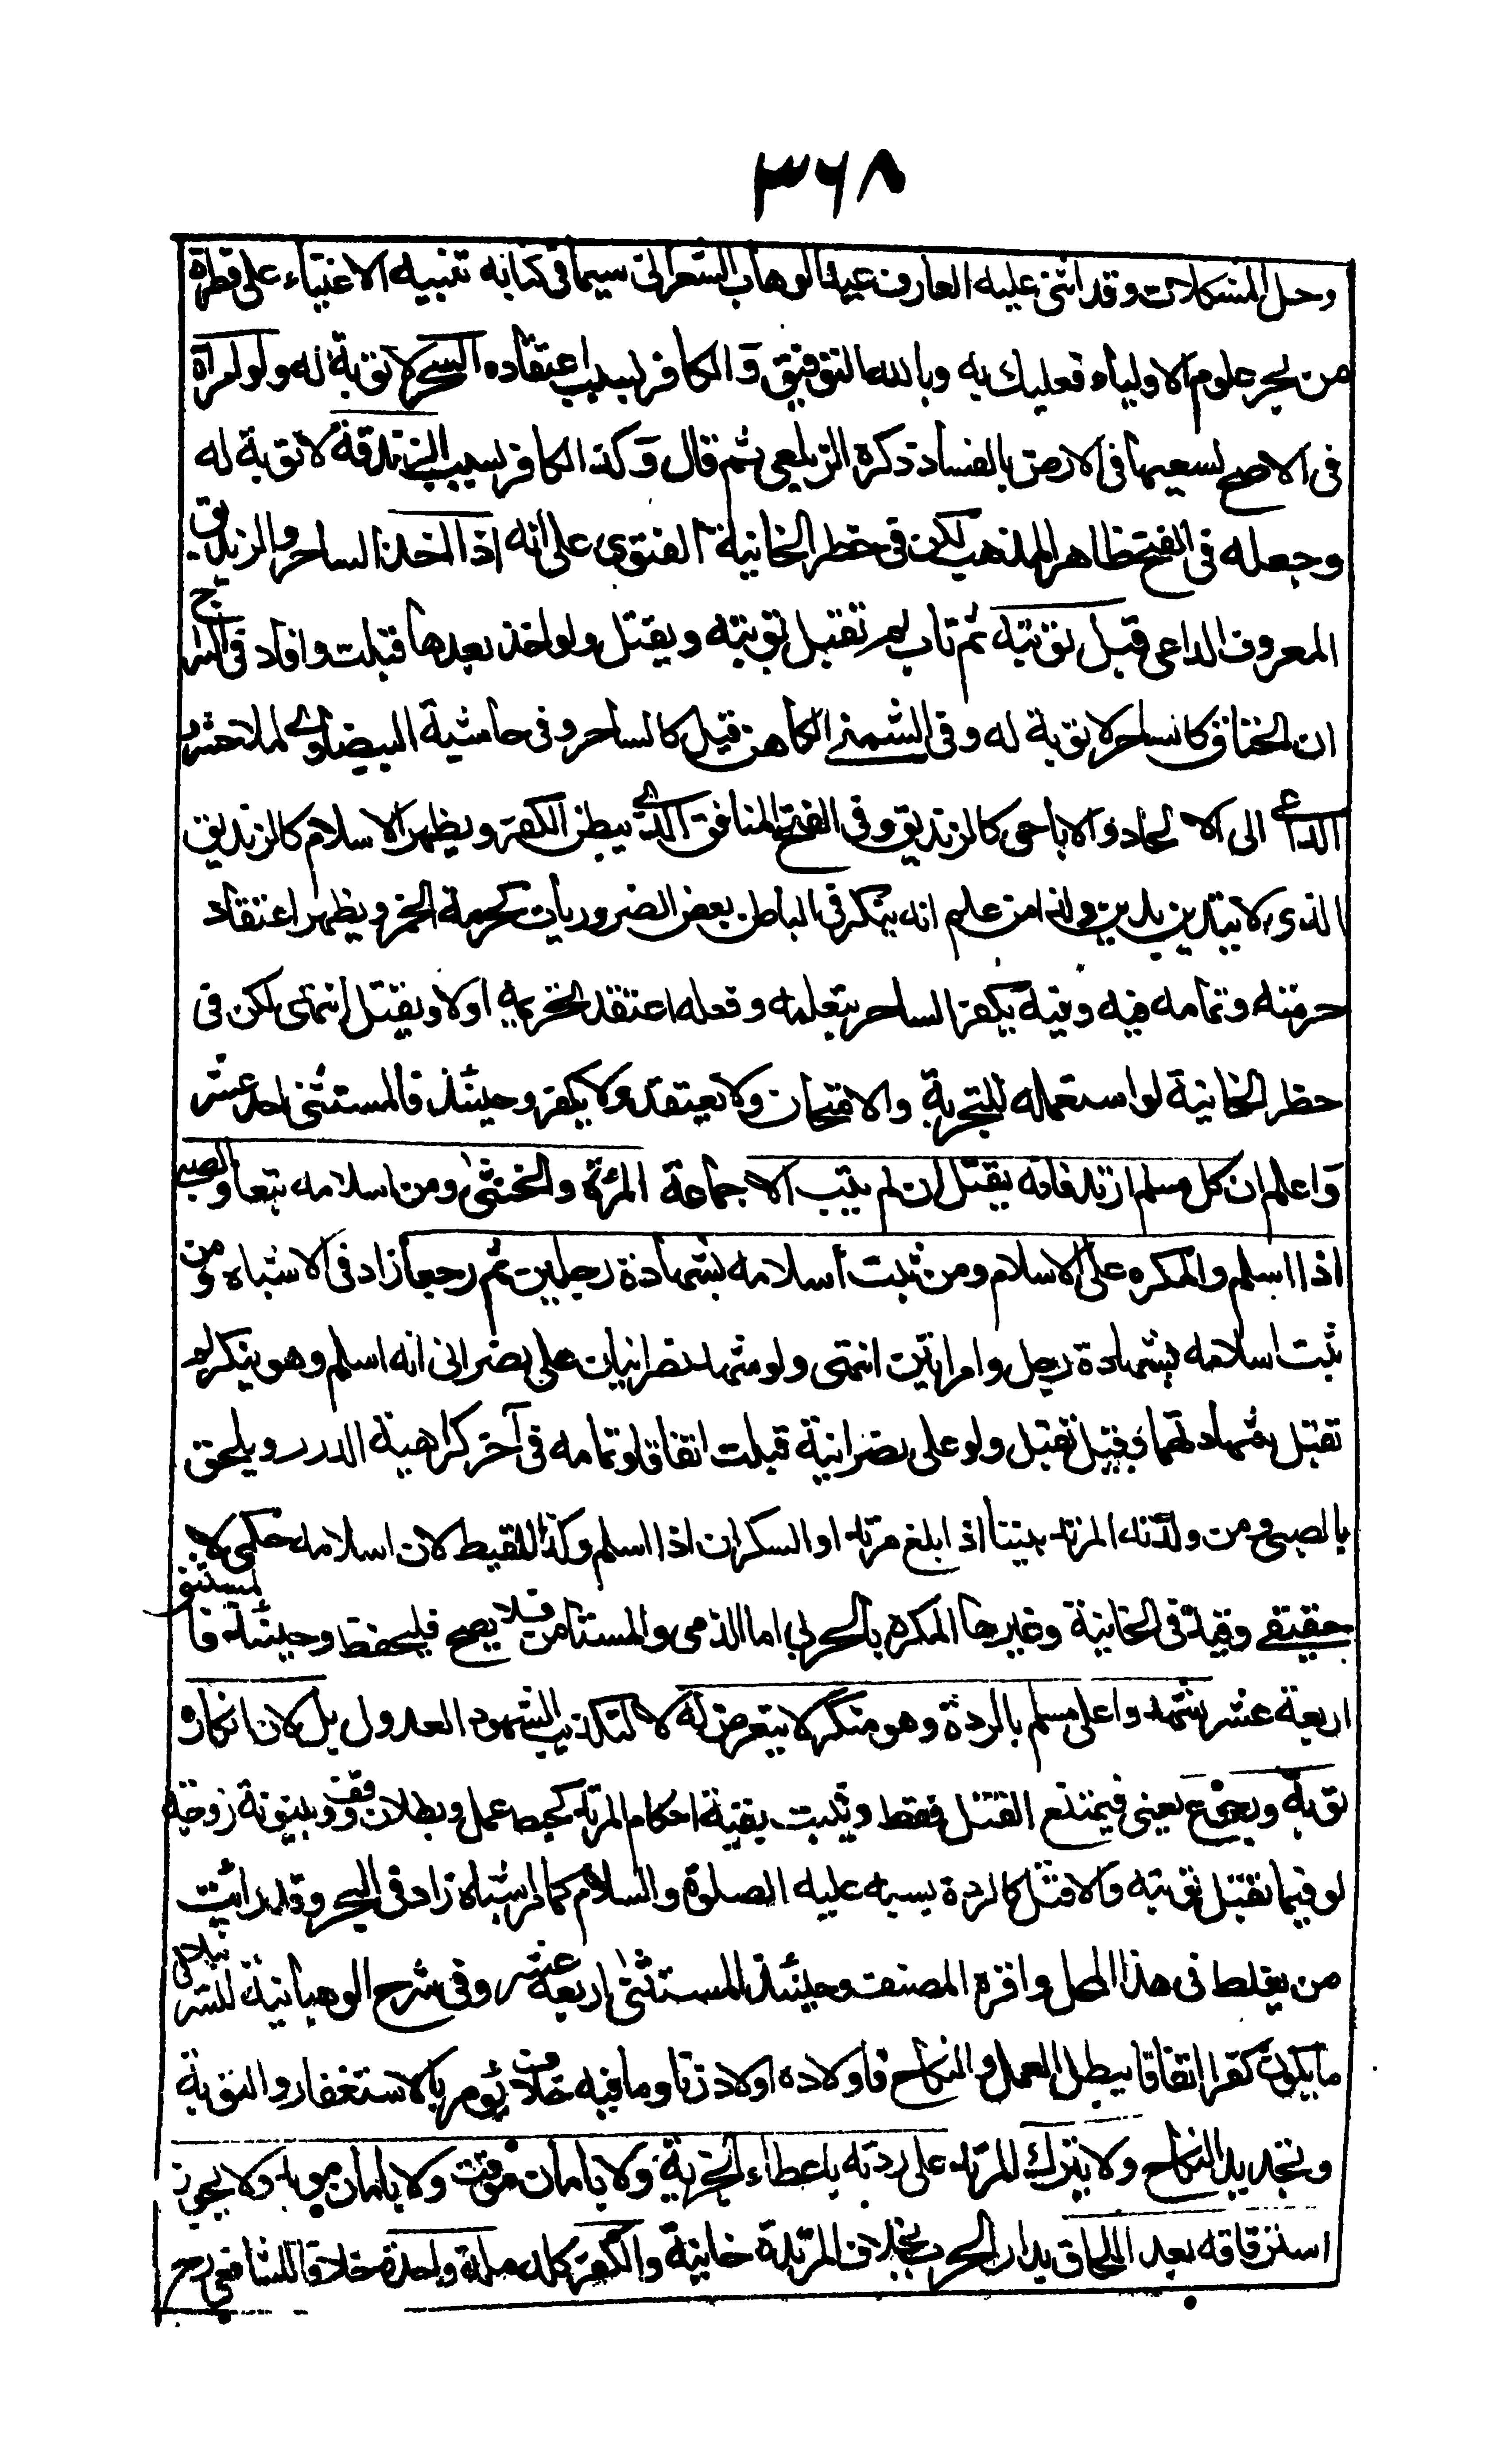 ٣٦٨
وحل المشكلات وقد اثنى عليه العارف عبد الوهاب الشعرانى سيما فى كتابه تنبيه الاغبياء على قطرة
من بحر علوم الاولياء فعليك به وبالله التوفيق و الكافر بسبب اعتقاده السحر لا توبة له ولو امراة
فى الاصح لسعيها فى الارض بالفساد ذكره الزيلعى ثم قال و كذا الكافر بسبب الزندقة لا توبة له
وجعله فى الفتح ظاهر المذهب لكن فى حظر الخانية الفتوى على انه اذا اخذ الساحر والزنديق
المعروف الداعى قبل توبته ثم تاب لم تقبل توبته ويقتل ولو اخذ بعدها قبلت وافاد فى السراج
ان الخناق كالساحر لا توبة له وفى الشمنى الكاهن قيل كالساحر وفى حاشية البيضاوى لملا خسرو
الداعى الى الالحاد والاباحى كالزنديق وفى الفتح المنافق الذى يبطن الكفر ويظهر الاسلام كالزنديق
الذى لا يتدين بدين وكذا من علم انه ينكر فى الباطن بعض الضروريات كحرمة الخمر ويظهر اعتقاد
حرمته وتمامه فيه وفيه يكفر الساحر بتعلمه وفعله اعتقد تحريمه اولا ويقتل انتهى لكن فى
حظر الخانية لو استعمله للتجربة والامتحان ولا يعتقده لا يكفر وحينئذ فالمستثنى احد عشر
و اعلم ان كل مسلم ارتد فانه يقتل ان لم يتب الا جماعة المرأة والخنثى ومن اسلامه تبعا والصبى
اذا اسلم والمكره على الاسلام ومن ثبت اسلامه بشهادة رجلين ثم رجعا زاد فى الاشباه ومن
ثبت اسلامه بشهادة رجل وامراتين انتهى ولو شهد نصرانيان على نصرانى انه اسلم وهو ينكر لم
تقبل شهادتهما وقيل تقبل ولو على نصرانية قبلت اتفاقا وتمامه فى آخر كراهية الدرر ويلحق
بالصبى من ولدته المرتدة بيننا اذا بلغ مرتدا والسكران اذا اسلم وكذا اللقيط لان اسلامه حكمى لا
حقيقى وقيده فى الخانية وغيرها المكره بالحربى اما الذمى والمستامن فلا يصح فليحفظ وحينئذ فالمستثنى
اربعة عشر شهدوا على مسلم بالردة وهو منكر لا يتعرض له لا لتكذيب الشهود العدول بل لان انكاره
توبة ورجوع يعنى فيمتنع القتل فقط وتثبت بقية احكام المرتد كحبط عمل وبطلان وقف وبينونة زوجة
لو فيما تقبل توبته والا قتل كالردة بسبه عليه الصلوة والسلام كما مر اشباه زاد فى البحر وقد رايت
من يغلط فى هذا المحل واقره المصنف وحينئذ المستثنى اربعة عشر وفى شرح الوهبانية للشرنبلالى
ما يكون كفرا اتفاقا يبطل العمل والنكاح فاولاده اولاد زنا وما فيه خلاف يؤمر بالاستغفار والتوبة
وتجديد النكاح ولا يترك المرتد على ردته باعطاء الجزية ولا بامان موقت ولا بامان مؤبد ولا يجوز
استرقاقه بعد اللحاق بدار الحرب بخلاف المرتدة خانية والكفر كله ملة واحدة خلافا للشافعى رح